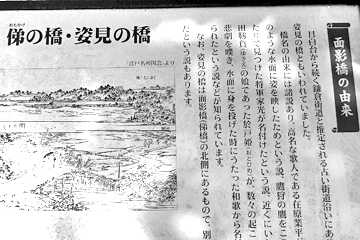 面影橋の由来
目白台から続く鎌倉街道と推定される古い街道沿いにあ
姿見の橋ともいわれていました。
橋名の由来には諸説あり、高名な歌人である在原業平
のような水面に姿を映したためという説、鷹狩の鷹をこ
たりで見つけた将軍家光が名付けたという説、近くにい
田靱負の娘であった於戸姫が、数々の起こ
悲劇を嘆き、水面に身を投げた時にうたった和歌から名
られたという説などが知られています。
なお、姿見の橋は面影橋(俤橋)の北側にあるもので、別
だという説もあります。
おもかげ
俤の橋・姿見の橋
「江戸名所図会」より